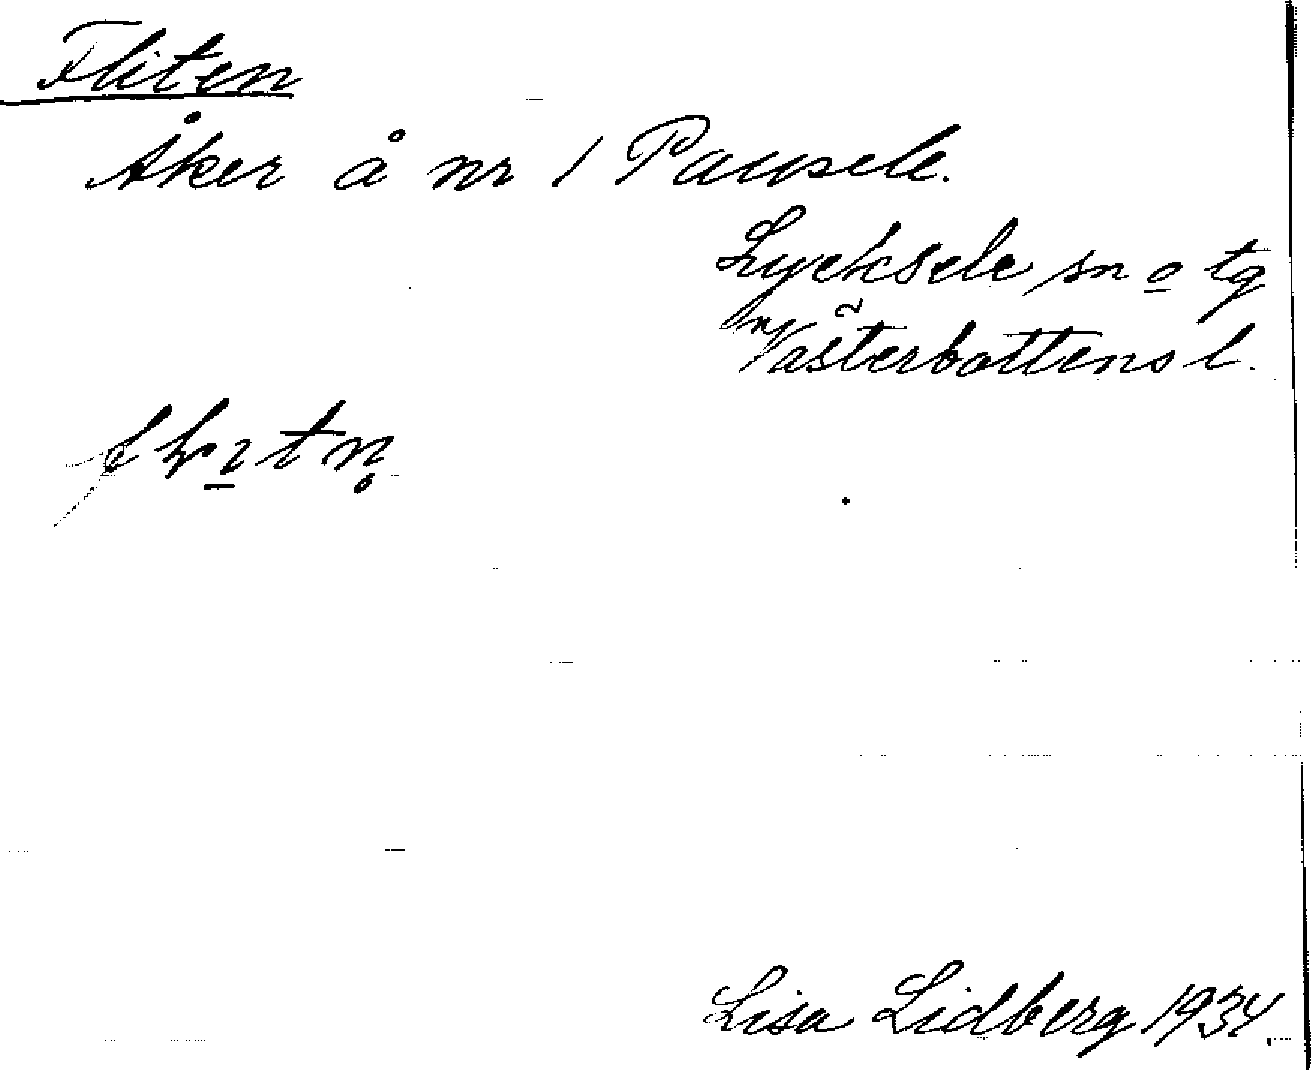 Fliten
Åker å nr 1 Pausele.
Lycksele sn o tg
Västerbottens l.
Lisa Lidberg 1934.